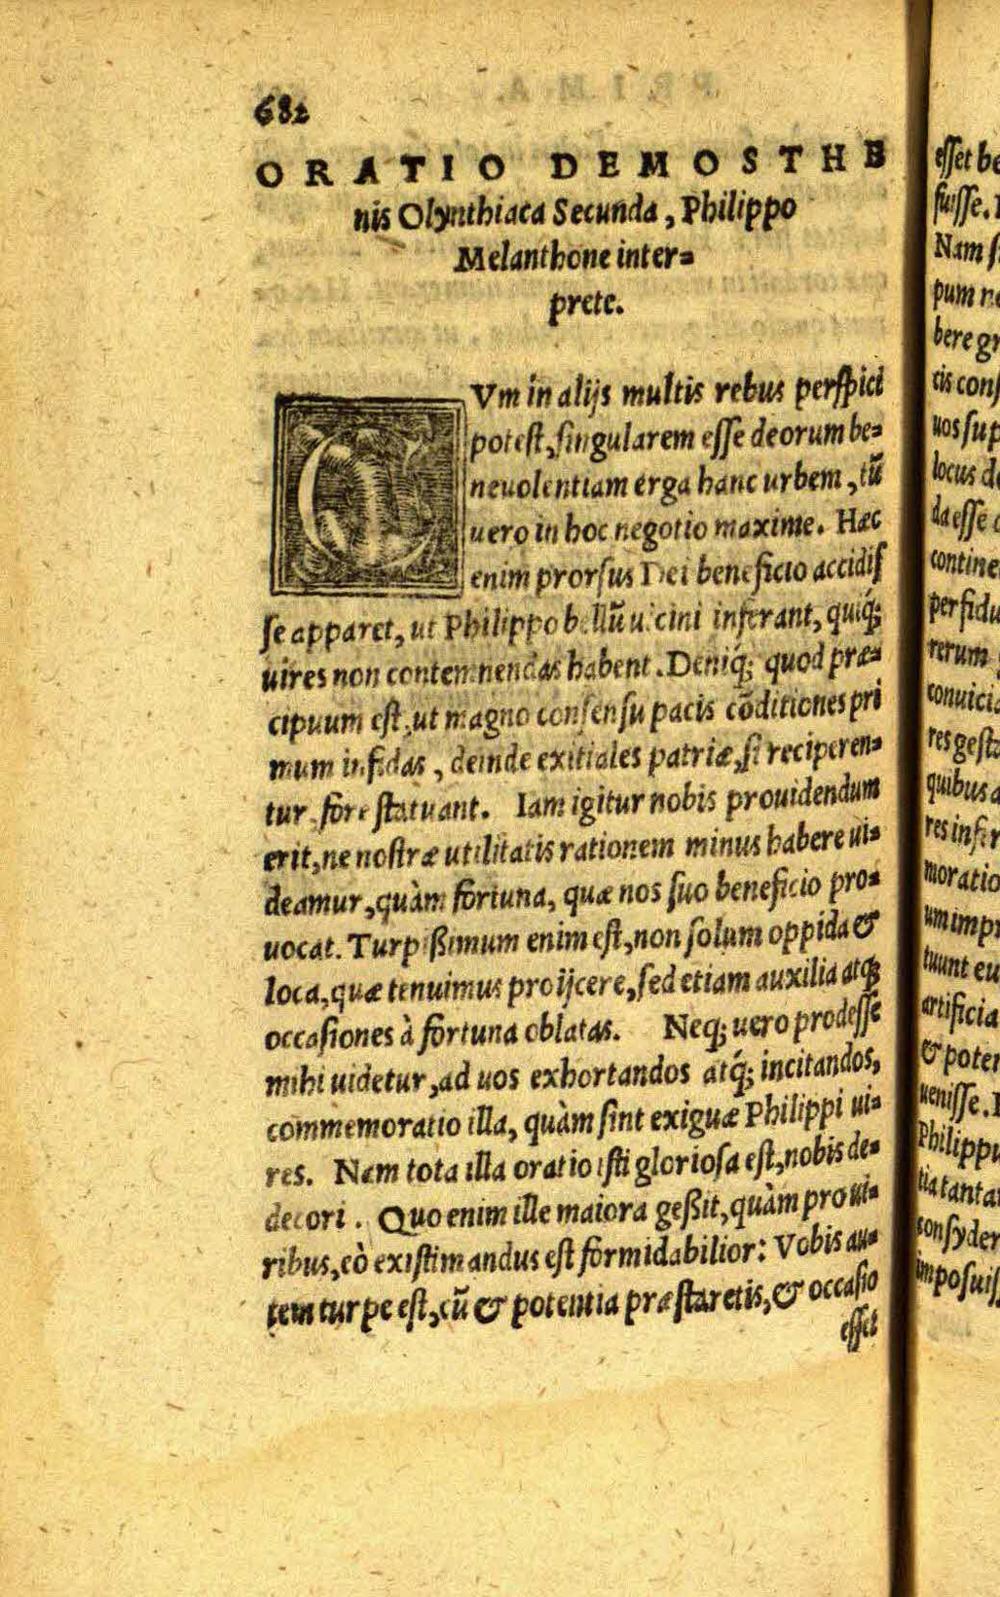 682
ORATIO DEMOSTHE
nis Olynthiaca Secunda, Philippo
Melanthone inter-
prete.
CVm in alijs multis rebus perspici
potest, singularem esse deorum be-
neuolentiam erga hanc urbem, tū
uero in hoc negotio maxime. Hæc
enim prorsus Dei beneficio accidis
se apparet, ut Philippo bellū uicini inferant, quiq́;
uires non contemnendas habent. Deniq́; quod præ-
cipuum est, ut magno consensu pacis cōditiones pri
mum infidas, deinde exitiales patriæ, si reciperen-
tur, fore statuant. Iam igitur nobis prouidendum
erit, ne nostræ utilitatis rationem minus habere ui-
deamur, quàm fortuna, quæ nos suo beneficio pro-
uocat. Turpißimum enim est, non solum oppida &
loca, quæ tenuimus proijcere, sed etiam auxilia atq;
occasiones à fortuna oblatas. Neq; uero prodesse
mihi uidetur, ad uos exhortandos atq́; incitandos,
commemoratio illa, quàm sint exiguæ Philippi ui-
res. Nam tota illa oratio isti gloriosa est, nobis de-
decori. Quo enim ille maiora geßit, quàm pro ui-
ribus, eò existimandus est formidabilior: Vobis au-
tem turpe est, cū & potentia præstaretis, & occasio
esset
esset be
fuisse.
Nam s
pum n
bere gr
tis cons
uos sup
locus d
da esse
contine
perfidu
rerum
conuicia
res gest
quibus a
res infir
moratio
um imp
tuunt eu
artificia
& poten
uenisse.
Philippu
tia tanta
consyder
imposuis